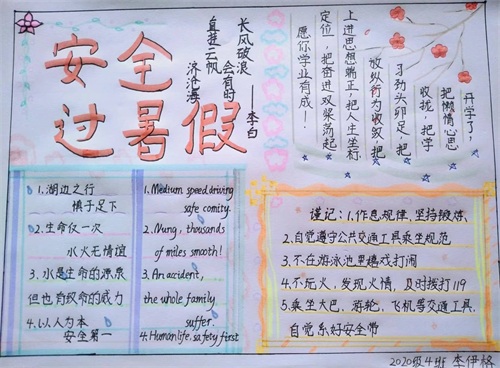 安全
过暑假
长风破浪
会有时
直挂云帆
济沧海
——李白
开学了，
把懒情心思
收拢，把学
习劲头卯足，把
放纵行为收敛，把
上进思想端正，把人生坐标
定位，把奋进双桨荡起
愿你学业有成！
1.湖边之行
慎于足下
2.生命仅一次
水火无情谊
3.水是生命的源泉
但也有致命的威力
4.以人为本
安全第一
1.Medium speed driving
safe comity.
2.Nung, thousands
of miles smooth!
3.An accident,
the whole family
suffer.
4.Human life, safety first
谨记：1.作息规律，坚持锻炼。
2.自觉遵守公共交通工具乘坐规范
3.不在游泳池里嬉戏打闹
4.不玩火，发现火情，及时拨打119
5.乘坐大巴、游轮、飞机等交通工具，
自觉系好安全带
2020级4班 李伊格